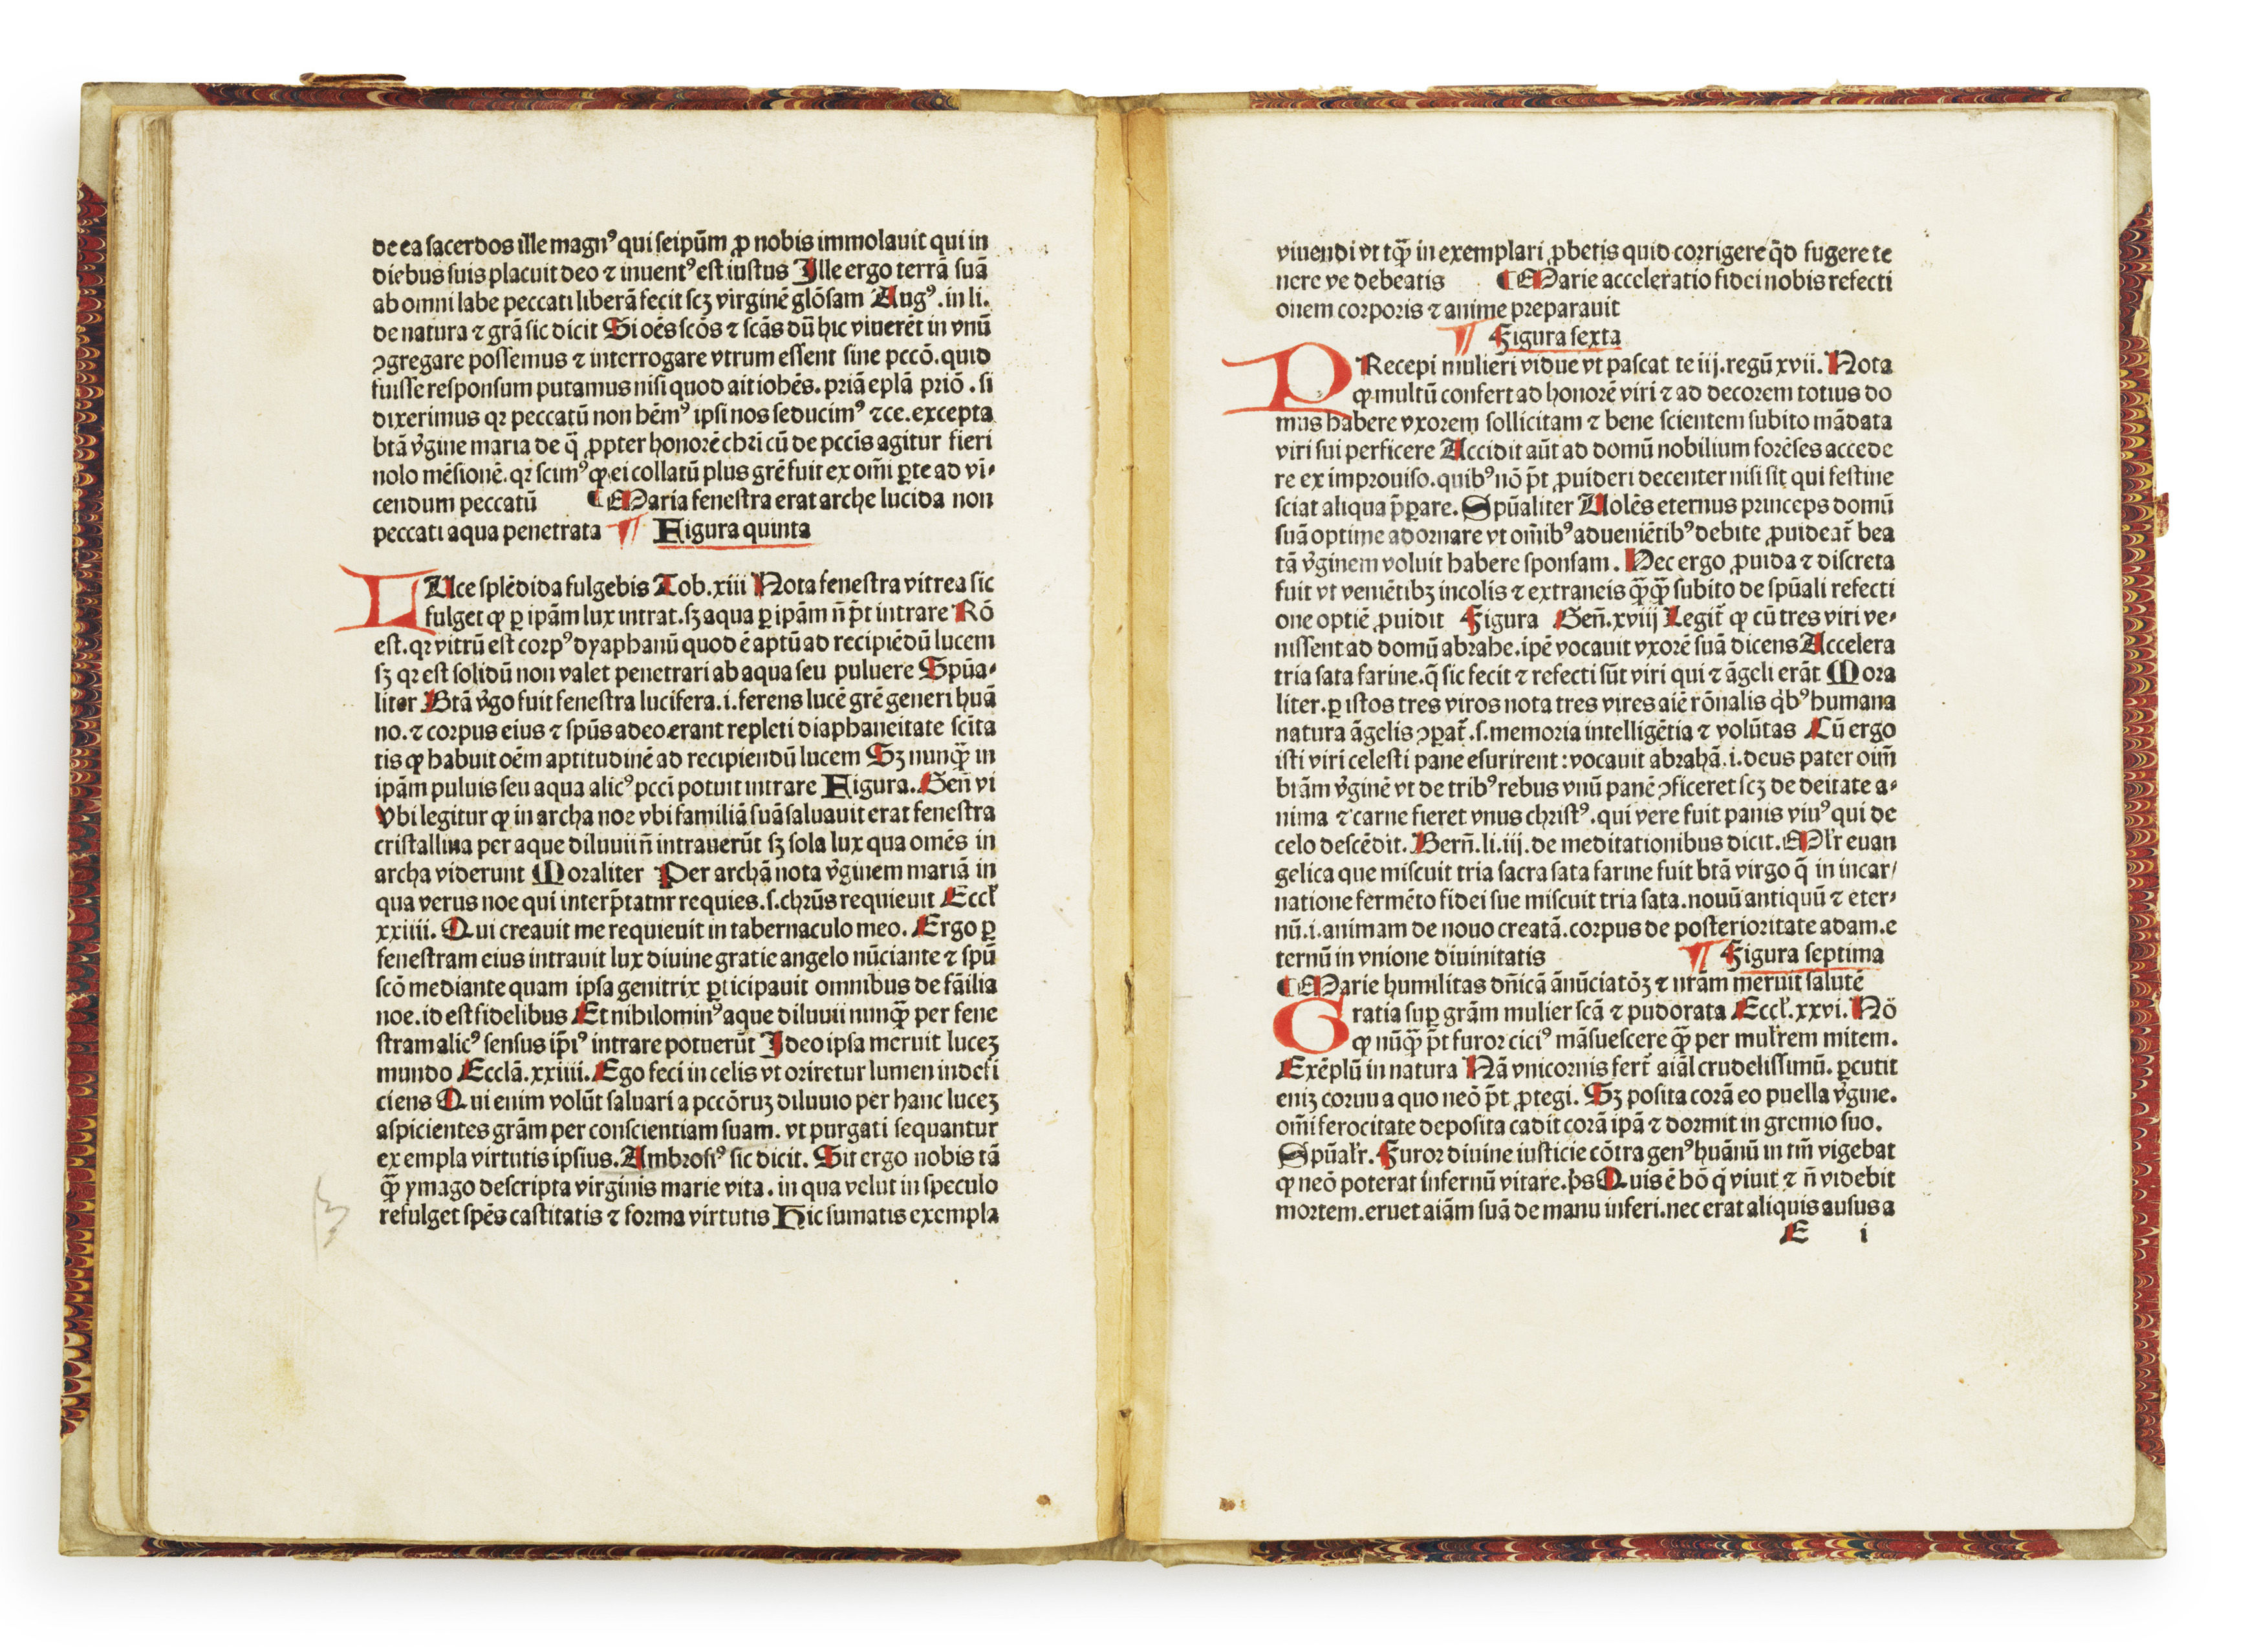 de ea sacerdos ille magnꝰ qui seipūm ꝓ nobis immolauit qui in
diebus suis placuit deo ⁊ inuentꝰ est iustus Ille ergo terrā suā
ab omni labe peccati liberā fecit scꝫ virginē glōsam Augꝰ. in li.
de natura ⁊ grā sic dicit Si oēs scōs ⁊ scās dū hic viuerēt in vnū
ꝯgregare possemus ⁊ interrogare vtrum essent sine pccō. quid
fuisse responsum putamus nisi quod ait iohēs. priā eplā priō. si
dixerimus qꝛ peccatū non hēmꝰ ipsi nos seducimꝰ ⁊ce. excepta
btā v̓gine maria de q̄ ꝓpter honorē chri cū de pccīs agitur fieri
nolo mēsionē. qꝛ scimꝰ ꝙ ei collatū plus grē fuit ex om̄i ꝑte ad vi-
cendum peccatū ⸿ Maria fenestra erat arche lucida non
peccati aqua penetrata ¶ Figura quinta
LUce splēdida fulgebis Tob. xiii Nota fenestra vitrea sic
fulget ꝙ ꝑ ipām lux intrat. sꝫ aqua ꝑ ipām n̄ p̄t intrare Rō
est. qꝛ vitrū est corpꝰ dyaphanū quod ē aptū ad recipiēdū lucem
sꝫ qꝛ est solidū non valet penetrari ab aqua seu puluere Spūa-
liter Btā v̓go fuit fenestra lucifera. i. ferens lucē grē generi huā
no. ⁊ corpus eius ⁊ spūs adeo erant repleti diaphaneitate scīta
tis ꝙ habuit oēm aptitudinē ad recipiendū lucem Sꝫ nunꝙ̄ in
ipām puluis seu aqua alicꝰ pccī potuit intrare Figura. Gen̄ vi
Vbi legitur ꝙ in archa noe vbi familiā suā saluauit erat fenestra
cristallina per aque diluuii n̄ intrauerūt sꝫ sola lux qua omēs in
archa viderunt Moraliter Per archā nota v̓ginem mariā in
qua verus noe qui interp̄tatnr requies. s. chrūs requieuit Eccl̓
xxiiii. Qui creauit me requieuit in tabernaculo meo. Ergo ꝑ
fenestram eius intrauit lux diuine gratie angelo nūciante ⁊ spū
scō mediante quam ipsa genitrix ꝑticipauit omnibus de fāilia
noe. id est fidelibus Et nihilominꝰ aque diluuii nunꝙ̄ per fene
stram alicꝰ sensus ip̄iꝰ intrare potuerūt Ideo ipsa meruit luceꝫ
mundo Ecclā. xxiiii. Ego feci in celis vt oriretur lumen indefi
ciens Qui enim volūt saluari a pccōruꝫ diluuio per hanc luceꝫ
aspicientes grām per conscientiam suam. vt purgati sequantur
exempla virtutis ipsius. Ambrosiꝰ sic dicit. Sit ergo nobis tā
ꝙ̄ ymago descripta virginis marie vita. in qua velut in speculo
refulget spēs castitatis ⁊ forma virtutis Hic sumatis exempla
viuendi vt tꝙ̄ in exemplari ꝓbetis quid corrigere qd̄ fugere te
nere ve debeatis ⸿ Marie acceleratio fidei nobis refecti
onem corporis ⁊ anime preparauit
¶ Figura sexta
PRecepi mulieri vidue vt pascat te iij. regū xvii. Nota
ꝙ multū confert ad honorē viri ⁊ ad decorem totius do
mus habere vxorem sollicitam ⁊ bene scientem subito mādata
viri sui perficere Accidit aūt ad domū nobilium forēses accede
re ex improuiso. quibꝰ nō p̄t ꝓuideri decenter nisi sit qui festine
sciat aliqua p̄ꝑare. Spūaliter Uolēs eternus princeps domū
suā optime adornare vt om̄ibꝰ adueniētibꝰ debite ꝓuideat̄ bea
tā v̓ginem voluit habere sponsam. Nec ergo ꝓuida ⁊ discreta
fuit vt veniētibꝫ incolis ⁊ extraneis ꝙ̄ꝙ̄ subito de spūali refecti
one optiē ꝓuidit Figura Gen̄. xviij Legit̄ ꝙ cū tres viri ve-
nissent ad domū abrahe. ipē vocauit vxorē suā dicens Accelera
tria sata farine. q̄ sic fecit ⁊ refecti sūt viri qui ⁊ āgeli erāt Mora
liter. ꝑ istos tres viros nota tres vires aiē rōnalis qͥbꝰ humana
natura āgelis ꝯꝑat̄. s. memoria intelligētia ⁊ volūtas Cū ergo
isti viri celesti pane esurirent: vocauit abrahā. i. deus pater oim̄
btām v̓ginē vt de tribꝰ rebus vnū panē ꝯficeret scꝫ de deitate a-
nima ⁊ carne fieret vnus christꝰ. qui vere fuit panis viuꝰ qui de
celo descēdit. Bern̄. li. iii. de meditationibus dicit. Ml̓r euan
gelica que miscuit tria sacra sata farine fuit btā virgo q̄ in incar/
natione fermēto fidei sue miscuit tria sata. nouū antiquū ⁊ eter-
nū. i. animam de nouo creatā. corpus de posterioritate adam. e
ternū in vnione diuinitatis ¶ Figura septima
⸿ Marie humilitas dn̄icā ānūciatōꝫ ⁊ nr̄am meruit salutē
Gratia suꝑ grām mulier scā ⁊ pudorata Eccl̓. xxvi. Nō
ꝙ nūꝙ̄ p̄t furor ciciꝰ māsuescere ꝙ̄ per mul̓rem mitem.
Exēplū in natura Nā vnicornis fert̄ aiāl crudelissimū. ꝑcutit
eniꝫ cornu a quo neō p̄t ꝓtegi. Sꝫ posita corā eo puella v̓gine.
om̄i ferocitate deposita cadit corā ipā ⁊ dormit in gremio suo.
Spūal̓r. Furor diuine iusticie cōtra genꝰ huānū in tm̄ vigebat
ꝙ neō poterat infernū vitare. p̄s Quis ē hō qͥ viuit ⁊ n̄ videbit
mortem. eruet aiām suā de manu inferi. nec erat aliquis ausus a
E i